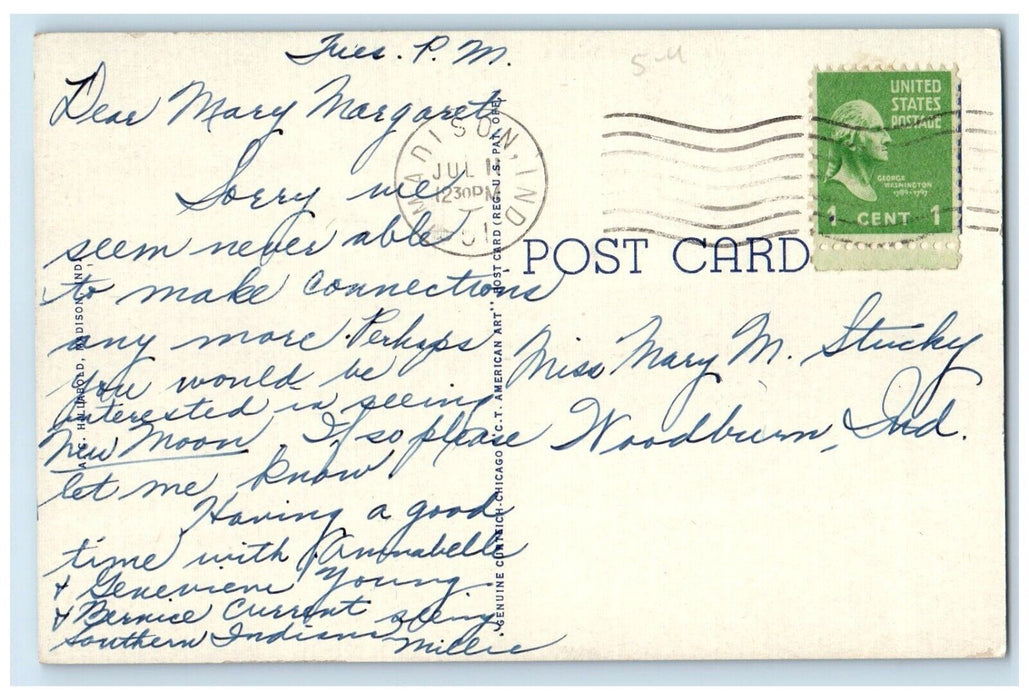 Tues. P. M.
Dear Mary Margaret,
Sorry we
seem never able
to make connections
any more. Perhaps
you would be
interested in seeing
New Moon. If so please
let me know
Having a good
time with Annabelle
+ Genevieve Young
+ Bernice Current seeing
Southern Indiana
Millie
A. C. HALLABOLD, MADISON, IND.
"GENUINE CURTEICH-CHICAGO "C.T. AMERICAN ART" POST CARD (REG. U.S. PAT. OFF.)
MADISON, IND.
JUL 1
12 30 PM
POST CARD
UNITED
STATES
POSTAGE
GEORGE
WASHINGTON
1789-1797
1 CENT 1
Miss Mary M. Stucky
Woodburn, Ind.